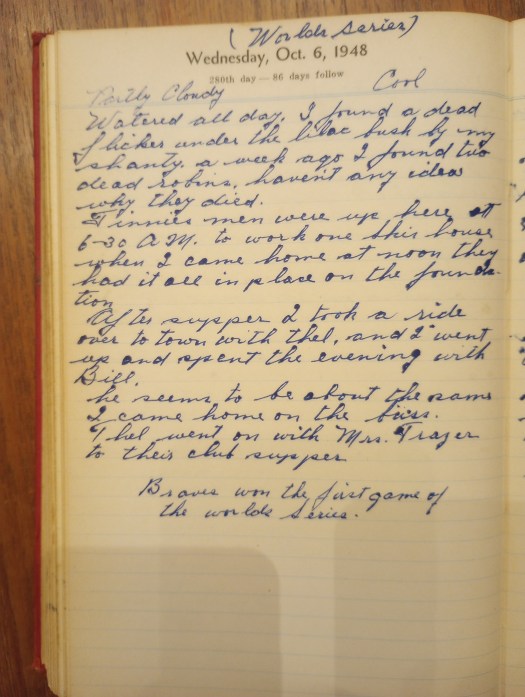 (Worlds Series)
Wednesday, Oct. 6, 1948
280th day — 86 days follow
Partly Cloudy Cool
Watered all day. I found a dead
flicker under the lilac bush by my
shanty. a week ago I found two
dead robins. haven't any ideas
why they died.
Finnies men were up here at
6-30 A.M. to work one this house
when I came home at noon they
had it all in place on the founda-
tion
After supper I took a ride
over to town with Thel, and I went
up and spent the evening with
Bill.
he seems to be about the same
I came home on the buss.
Thel went on with Mrs. Frazer
to their club supper
Braves won the first game of
the worlds series.